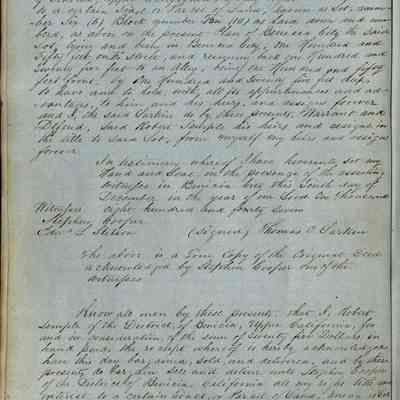 to a certain Lot of Land, known as Lot, num-
ber Six (6) Block number Ten (10) as Laid down and num-
bered, as above on the present Plan of Benicia City the said
Lot, lying and being in Benicia City, One Hundred and
Fifty feet, on the street, and running back One Hundred and
Twenty five feet to an alley, being One Hundred and fifty
feet front, by One Hundred and Twenty five feet deep.
To have and to hold, with all its appurtenances and ad-
vantages, to him and his heirs, and assigns forever
and I, the said Larkin do by these presents, Warrant and
Defend, said Robert Semple his heirs and assigns, in
the title to said Lot, from myself my heirs and assigns
forever
In testimony whereof I have hereunto set my
Hand and Seal in the presence of the assenting
witnesses in Benicia City this Tenth day of
December in the year of our Lord One thousand
Witnesses eight hundred and fourty seven
Stephen Cooper
(signed) Thomas O. Larkin
The above is a True Copy of the Original Deed
acknowledged by Stephen Cooper one of the
witnesses
Know all men by these presents, that I, Robert
Semple of the District of Benicia, Upper California, for
and in consideration of the sum of Twenty five Dollars, in
hand paid, the receipt whereof is hereby acknowledged
have this day bargained, sold, and delivered, and by these
presents do bargain sell and deliver unto Stephen Cooper
of the District of Benicia, California all my right title and
interest to a certain Lot, or Parcel of Land, known